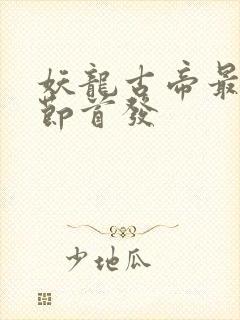 妖龍古帝最
節首發
少地瓜